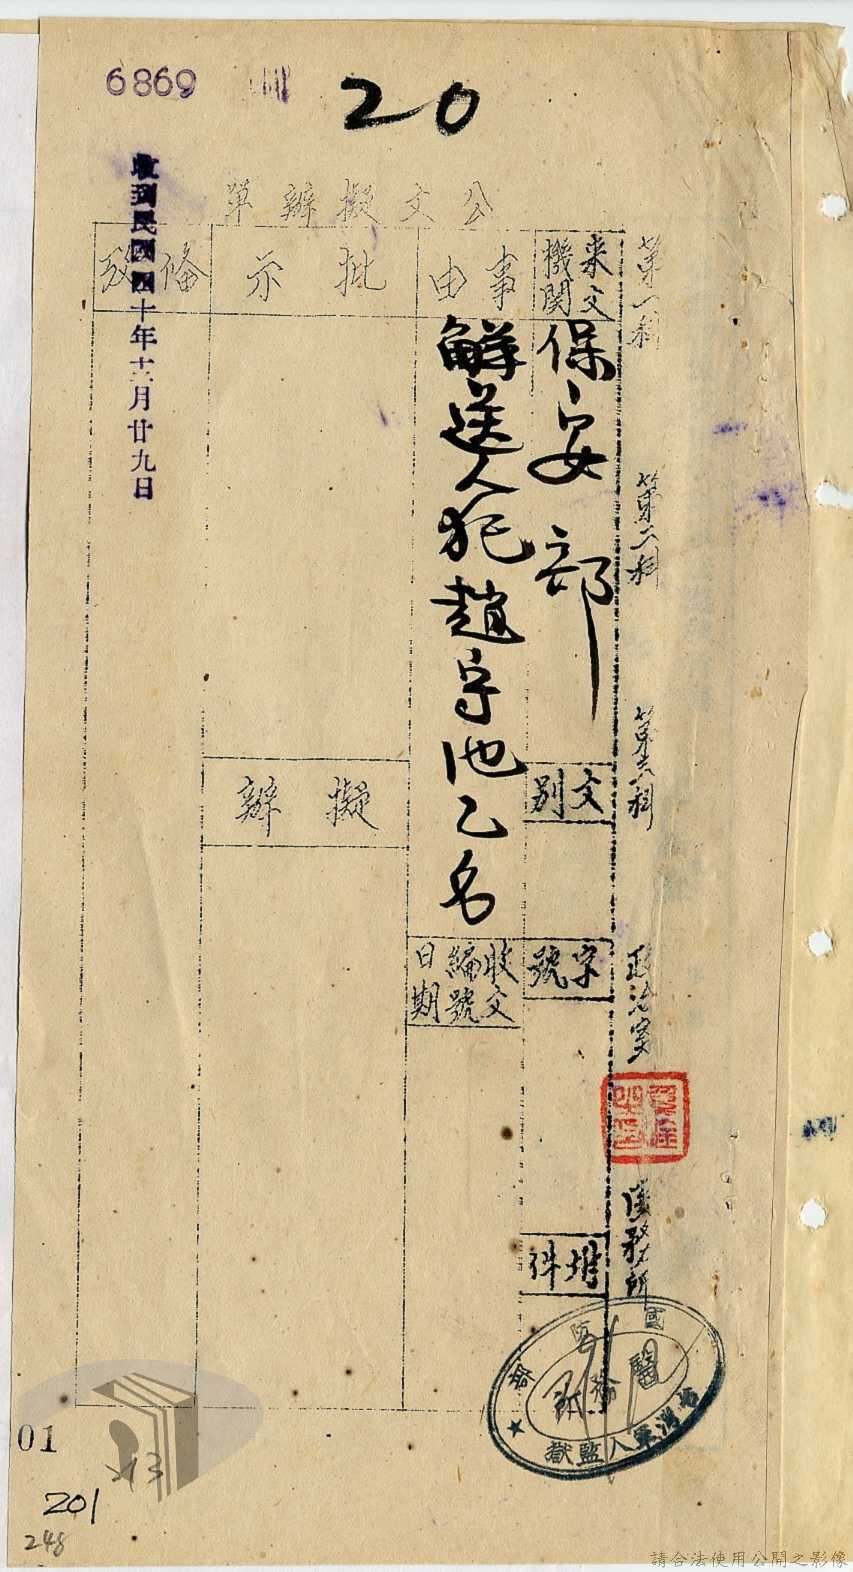 6869
20
公文擬辦單
第一科
第二科
第三科
政治室
醫務所
來文機關
保安部
文別
字號
附件
事由
解送人犯趙守池乙名
收文編號日期
批示
擬辦
備攷
收到民國四十年十二月廿九日
國防部
台灣軍人監獄
01
213
201
248
請合法使用公開之影像